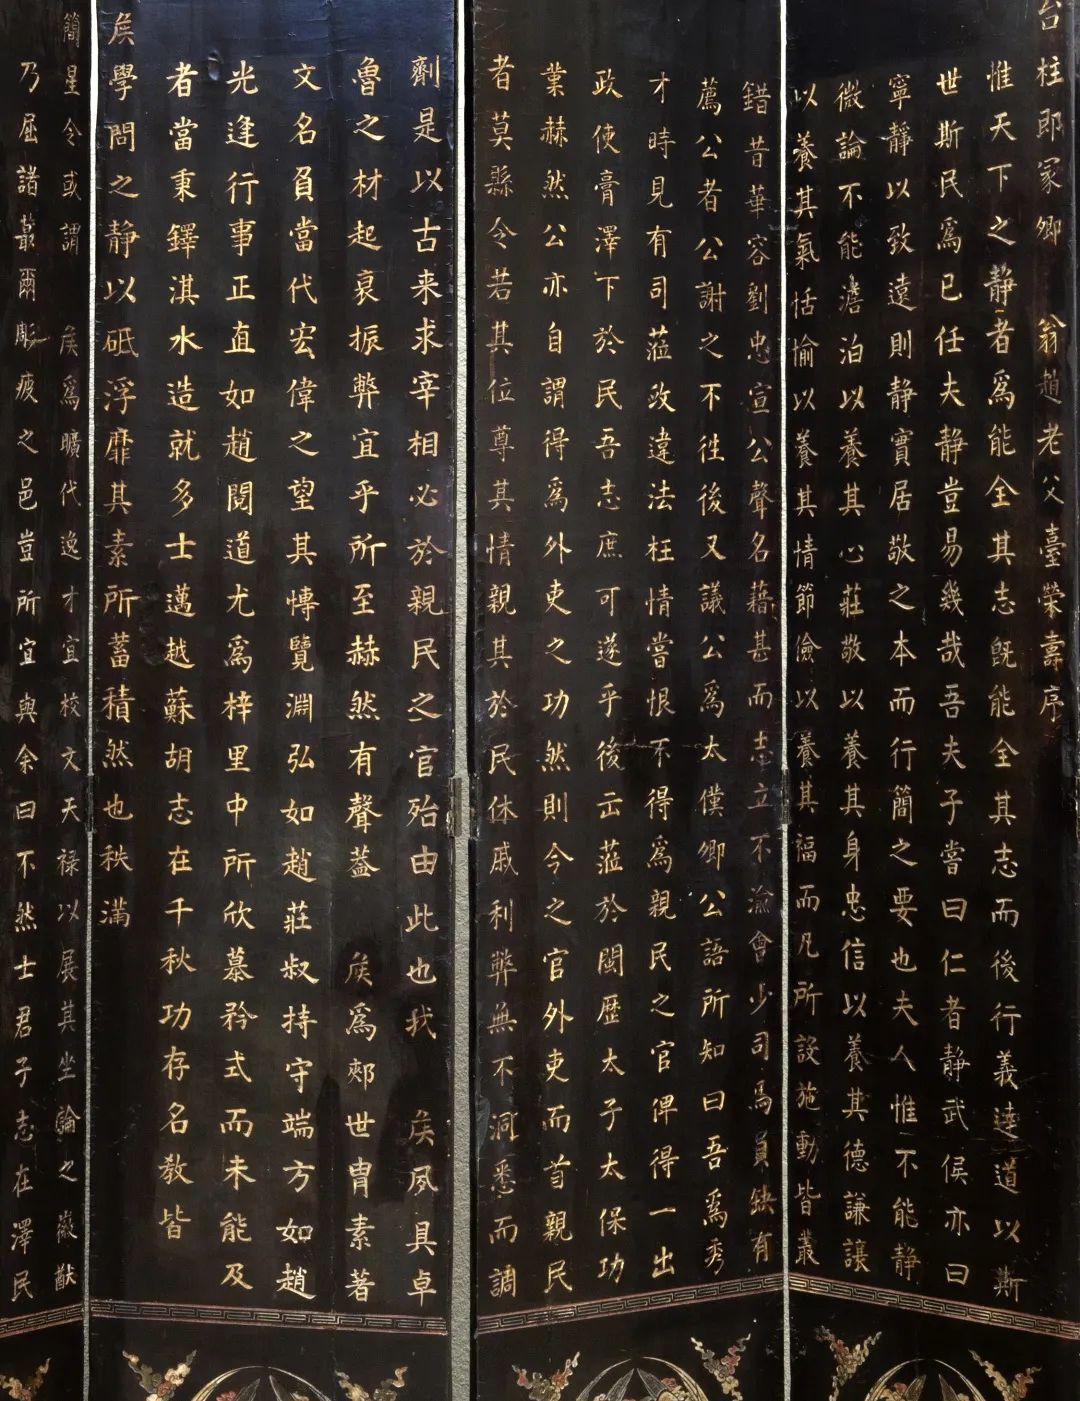 台柱即冢卿 翁趙老父臺榮壽序
惟天下之静者爲能全其志旣能全其志而後行義達道以斯
世斯民爲已任夫静豈易幾哉吾夫子嘗曰仁者静武侯亦曰
寧靜以致遠則静實居敬之本而行簡之要也夫人惟不能静
微論不能澹泊以養其心莊敬以養其身忠信以養其德謙讓
以養其氣恬愉以養其情節儉以養其福而凡所設施動皆叢
錯昔華容劉忠宣公聲名藉甚而志立不渝會少司馬員缺有
薦公者公謝之不徃後又議公爲太僕卿公語所知曰吾爲秀
才時見有司蒞政違法枉情當恨不得爲親民之官俾得一出
政使膏澤下於民吾志庶可遂乎後云蒞於閩歷太子太保功
業赫然公亦自謂得爲外吏之功然則今之官外吏而首親民
者莫縣令若其位尊其情親其於民休戚利弊無不洞悉而調
劑是以古来求宰相必於親民之官殆由此也我 矦夙具卓
魯之材起衰振弊宜乎所至赫然有聲蓋 矦爲郟世胄素著
文名負當代宏偉之望其愽覽淵弘如趙莊叔持守端方如趙
光逢行事正直如趙閱道尤爲梓里中所欣慕矜式而未能及
者當秉鐸淇水造就多士邁越蘇胡志在千秋功存名教皆
矦學問之静以砥浮靡其素所蓄積然也秩滿
簡星令或謂 矦爲曠代逸才宜校文天祿以展其坐論之嶶猷
乃屈諸蕞爾彫疲之邑豈所宜與余曰不然士君子志在澤民